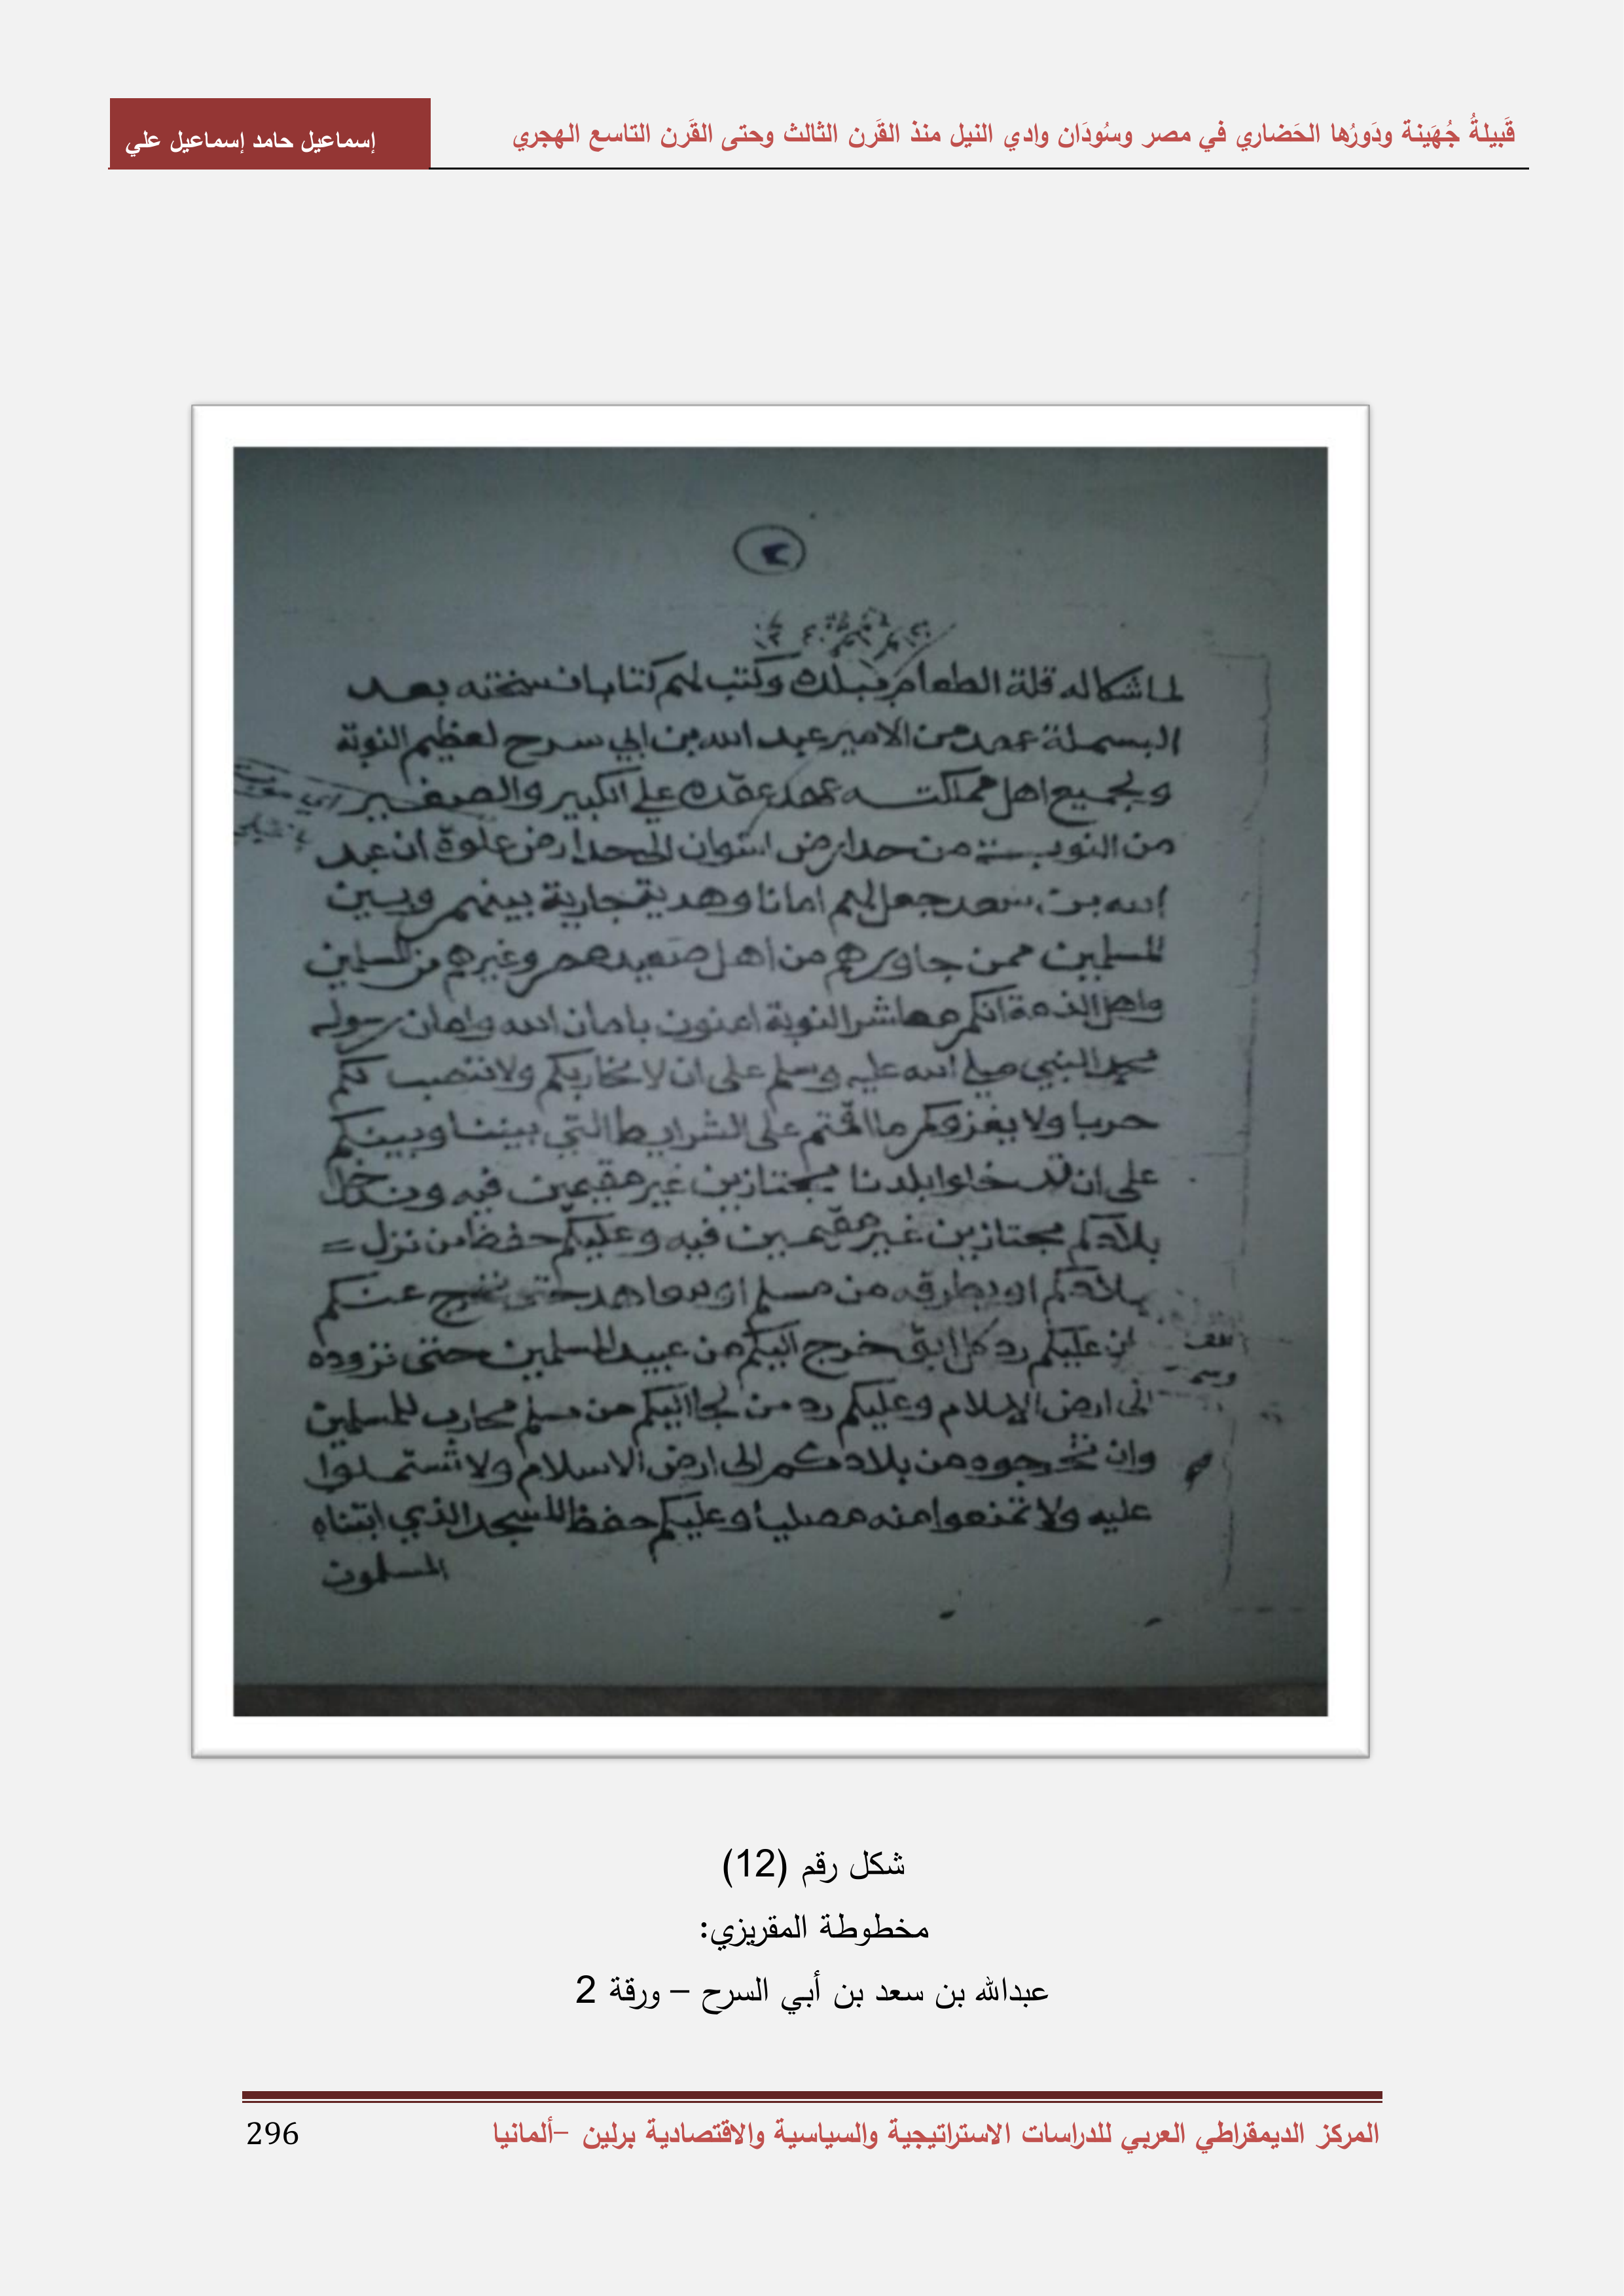 قَبيلةُ جُهَينة ودَورُها الحَضاري في مصر وسُودَان وادي النيل منذ القَرن الثالث وحتى القَرن التاسع الهجري
إسماعيل حامد إسماعيل علي
٢
لما شكا له قلة الطعام ببلده وكتب لهم كتابا نسخته بعد
البسملة عهد من الامير عبد الله بن ابي سرح لعظيم النوبة
ولجميع اهل مملكته عهد عقده على الكبير والصغير
من النوبة من حد ارض اسوان الى حد ارض علوة ان عبد
الله بن سعد جعل لهم امانا وهدية جارية بينهم وبين
المسلمين ممن جاورهم من اهل صعيد مصر وغيرهم من المسلمين
واهل الذمة انكم معاشر النوبة امنون بامان الله وامان رسوله
محمد النبي صلى الله عليه وسلم على ان لا نحاربكم ولا ننصب لكم
حربا ولا نغزوكم ما اقمتم على الشرايط التي بيننا وبينكم
على ان تدخلوا بلدنا مجتازين غير مقيمين فيه وندخل
بلادكم مجتازين غير مقيمين فيه وعليكم حفظ من نزل =
بلادكم او بطرقه من مسلم او معاهد حتى يخرج عنكم
ان عليكم رد كل ابق خرج اليكم من عبيد المسلمين حتى تردوه
الى ارض الاسلام وعليكم رد من لجا اليكم من مسلم محارب للمسلمين
وان تخرجوه من بلادكم الى ارض الاسلام ولا تستملوا
عليه ولا تمنعوا منه مصليا وعليكم حفظ المسجد الذي ابتناه
المسلمون
شكل رقم (12)
مخطوطة المقريزي:
عبدالله بن سعد بن أبي السرح – ورقة 2
المركز الديمقراطي العربي للدراسات الاستراتيجية والسياسية والاقتصادية برلين –ألمانيا
296